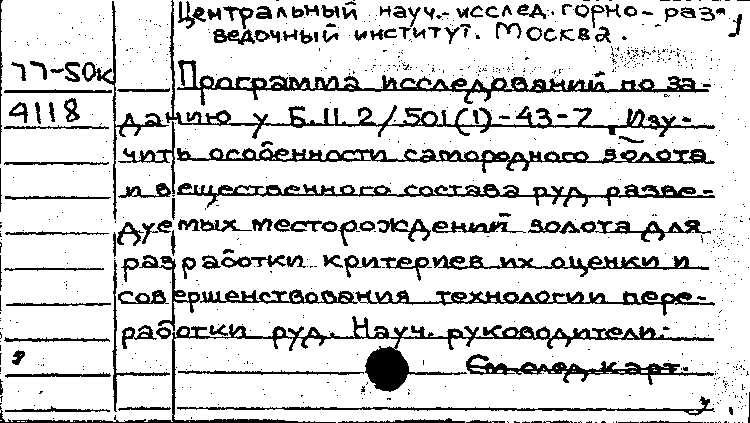 Центральный науч.-исслед. горно-раз-
ведочный институт. Москва.
77-50к
4118
Программа исследований по за-
данию у Б.II.2/501(1)-43-7 "Изу-
чить особенности самородного золота
и вещественного состава руд разве-
дуемых месторождений золота для
разработки критериев их оценки и
совершенствования технологии пере-
работки руд. Науч. руководители:
См. след. карт.